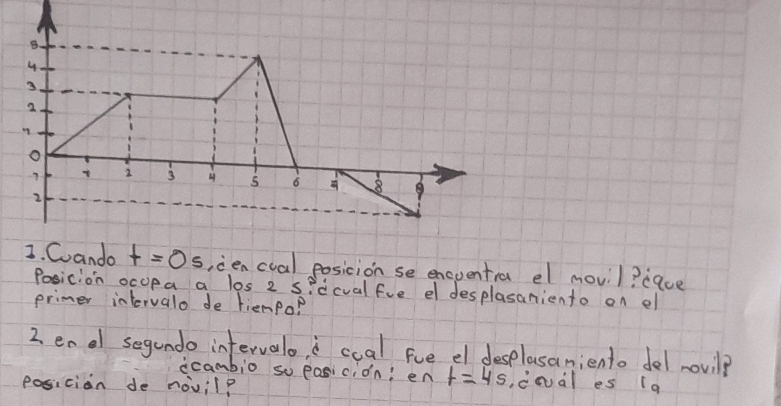 5
4
3
2
1
0
1
2
1 2 3 4 5 6 7 8 9
1. Cuando t = 0s, ¿en cual posición se encuentra el movil? ¿que
Posición ocupa a los 2 s? ¿cual fue el desplasamiento en el
primer intervalo de tiempo?
2. en el segundo intervalo, ¿ cual fue el desplasamiento del movil?
¿cambio su posición; en t = 4s, ¿cuál es la
posición de móvil?